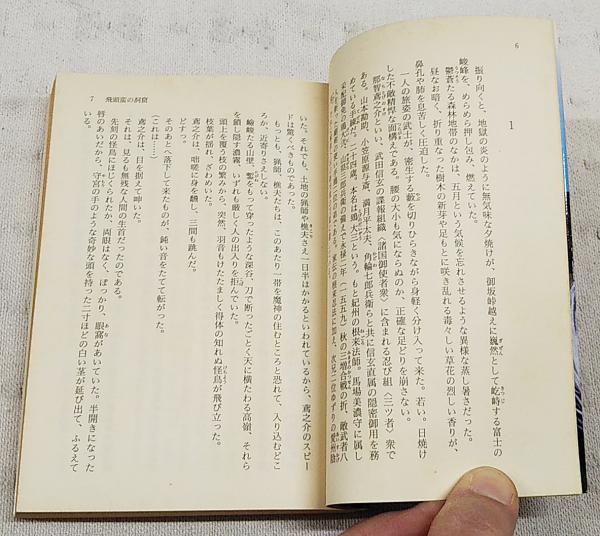 6
1
振り向くと、地獄の炎のように無気味な夕焼けが、御坂峠越えに巍然として屹峙する富士の
峻峰を、めらめら押し包み、燃えていた。
鬱蒼たる森林地帯のなかは、五月という気候を忘れさせるような異様な蒸し暑さだった。
昼なお暗く、折り重なった樹木の新芽や足もとに咲き乱れる毒々しい草花の烈しい香りが、
鼻孔や肺を息苦しく圧迫した。
一人の旅姿の武士が、密生する藪を切りひらきながら身軽く分け入って来た。若い。日焼け
した不敵精悍な面構えである。腰の大小も気にならぬのか、正確な足どりを崩さない。
那智鳶之介といい、武田信玄の諜報組織〈諸国御使者衆〉に含まれる忍び組〈三ツ者〉衆で
ある。山本勘助、小笠原源与斎、満月平太夫、角輪七郎兵衛らと共に信玄直属の隠密御用を務
めている手練だ。二十四歳。本名は鵜大三という。もと紀州の根来法師。馬場美濃守に属し
永禄二年（一五五九）秋の三増合戦の折、敵武者八
7 飛頭蛮の洞窟
いた。それでも、土地の猟師や樵夫さえ一日半はかかるといわれているから、鳶之介のスピー
ドは驚くべきものであった。
もっとも、猟師、樵夫たちは、このあたり一帯を魔神の住むところと恐れて、入り込むどこ
ろか、近寄りさえしない。
嶮峻たる山壁、鑿をもって穿ったような深谷、刀で断ったごとく天に横たわる高嶺、それら
を鎖し隠す濃霧、いずれも厳しく人の出入りを拒んでいた。
頭上を覆う枝の繁みから、突然、羽音もけたたましく得体の知れぬ怪鳥が飛び立った。
枝葉が揺れ、ざわめいた。
鳶之介は、咄嗟に身を飜し、三間も跳んだ。
どすっ。
そのあとへ落下して来たものが、鈍い音をたてて転がった。
（これは……）
鳶之介は、目を据えて呻いた。
それは、見るも無残な人間の生首だったのである。
先刻の怪鳥にほじくられたか、両眼はなく、ぽっかり、眼窩があいていた。半開きになった
唇のあいだから、守宮の手のような奇妙な頭を持った二寸ほどの白い茎が延び出て、ふるえて